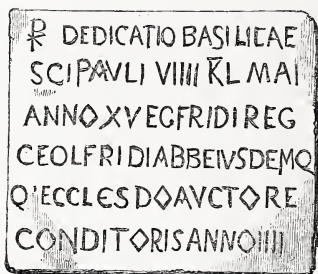 ☧ DEDICATIO BASILICAE
SCI PAVLI VIIII K̅L MAI
ANNO XV ECFRIDI REG
CEOLFRIDI ABB EIVSDEMQ
Q' ECCLES DO AVCTORE
CONDITORIS ANNO IIII